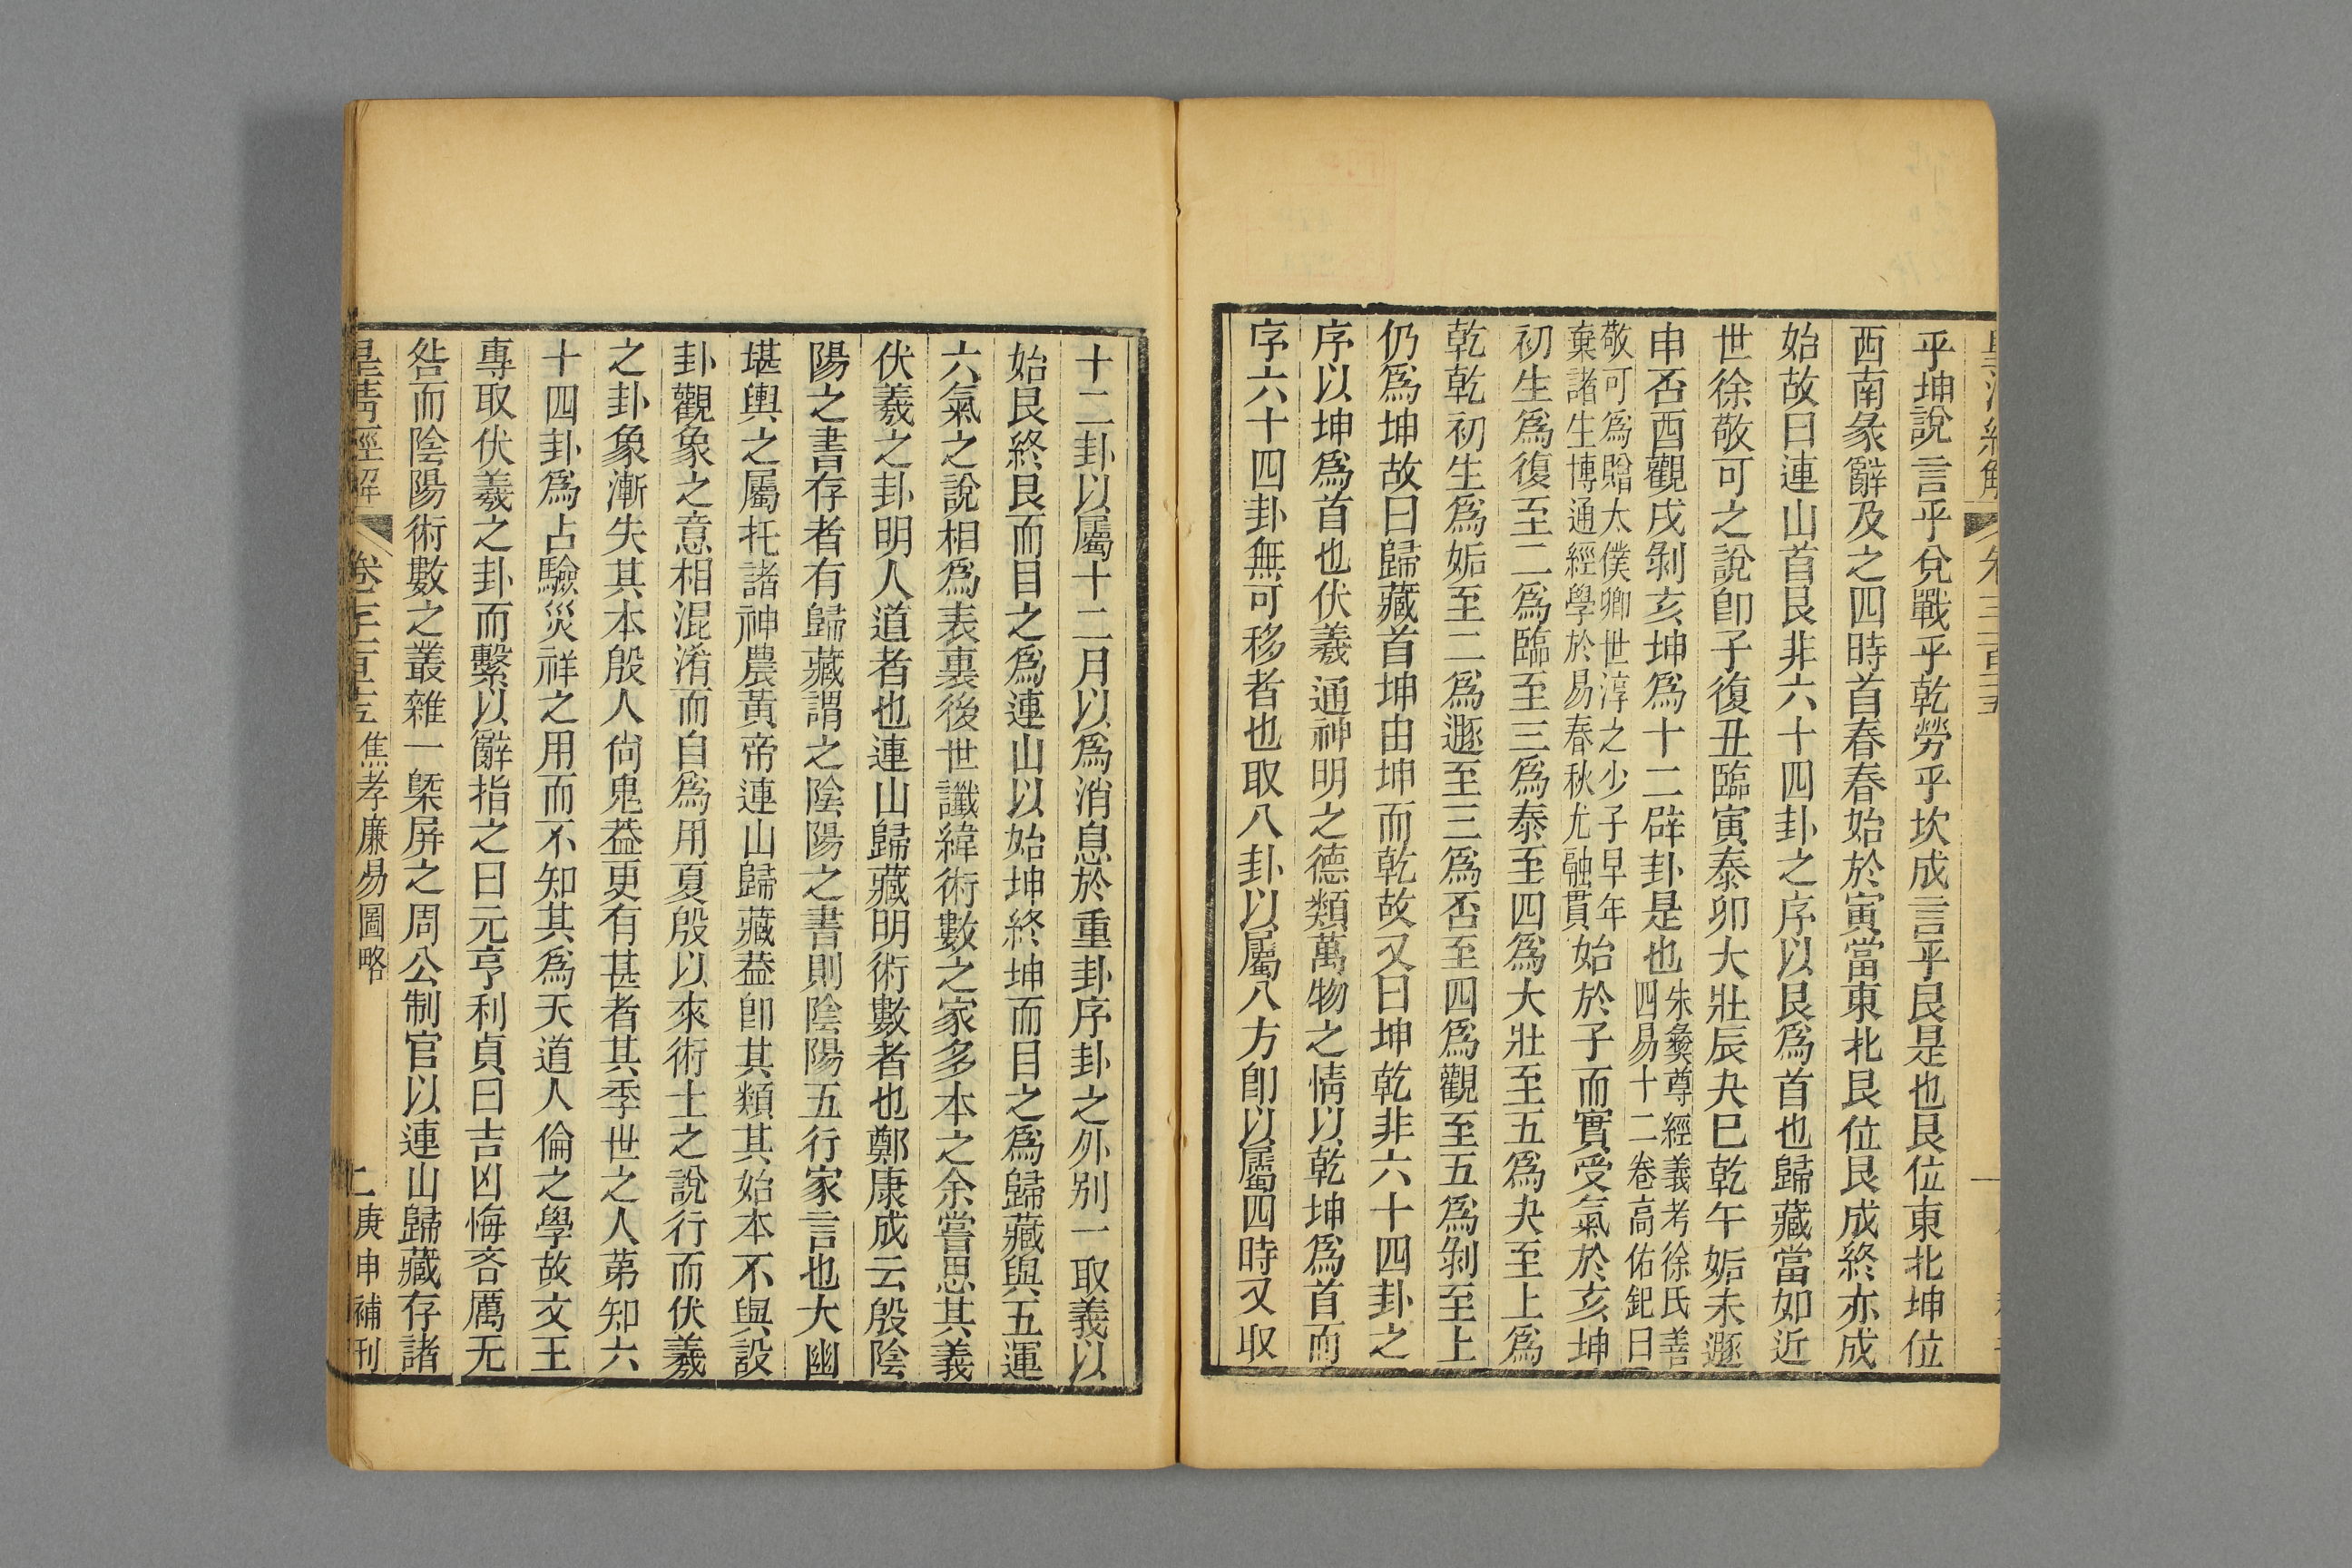 乎坤說言乎兌戰乎乾勞乎坎成言乎艮是也艮位東北坤位
西南彖辭及之四時首春春始於寅當東北艮位艮成終亦成
始故曰連山首艮非六十四卦之序以艮爲首也歸藏當如近
世徐敬可之說卽子復丑臨寅泰卯大壯辰夬巳乾午姤未遯
申否酉觀戌剝亥坤爲十二辟卦是也
朱彝尊經義考徐氏善
四易十二卷高佑釲曰
敬可爲贈太僕卿世淳之少子早年
棄諸生博通經學於易春秋尤融貫
始於子而實受氣於亥坤
初生爲復至二爲臨至三爲泰至四爲大壯至五爲夬至上爲
乾乾初生爲姤至二爲遯至三爲否至四爲觀至五爲剝至上
仍爲坤故曰歸藏首坤由坤而乾故又曰坤乾非六十四卦之
序以坤爲首也伏羲通神明之德類萬物之情以乾坤爲首而
序六十四卦無可移者也取八卦以屬八方卽以屬四時又取
十二卦以屬十二月以爲消息於重卦序卦之外别一取義以
始艮終艮而目之爲連山以始坤終坤而目之爲歸藏與五運
六氣之說相爲表裏後世讖緯術數之家多本之余嘗思其義
伏羲之卦明人道者也連山歸藏明術數者也鄭康成云殷陰
陽之書存者有歸藏謂之陰陽之書則陰陽五行家言也大幽
堪輿之屬托諸神農黃帝連山歸藏葢卽其類其始本不與設
卦觀象之意相混淆而自爲用夏殷以來術士之說行而伏羲
之卦象漸失其本殷人尙鬼葢更有甚者其季世之人第知六
十四卦爲占驗災祥之用而不知其爲天道人倫之學故文王
專取伏羲之卦而繫以辭指之曰元亨利貞曰吉凶悔吝厲无
咎而陰陽術數之叢雜一槩屏之周公制官以連山歸藏存諸
皇淸經解
焦孝廉易圖略
庚申補刊